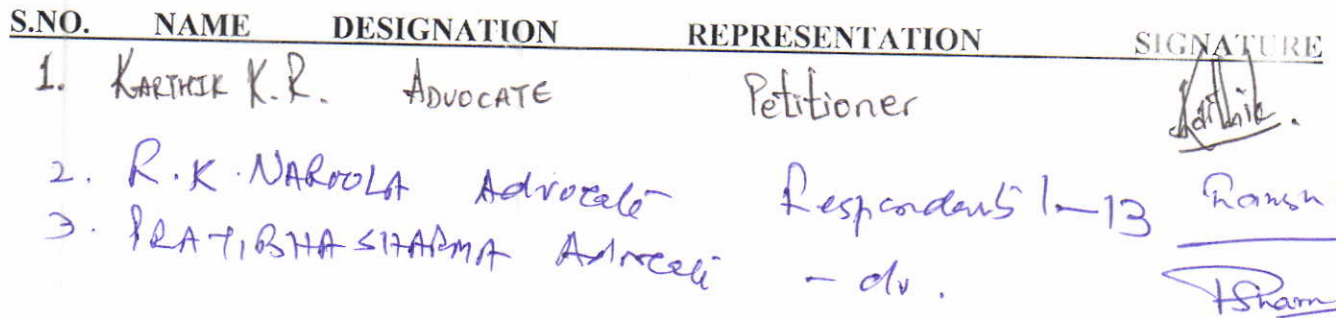 S.NO. NAME DESIGNATION REPRESENTATION SIGNATURE
1. KARTHIK K.R. ADVOCATE Petitioner Karthik.
2. R.K. NAROOLA Advocate Respondents 1-13
3. PRATIBHA SHARMA Advocate - do. PSharm